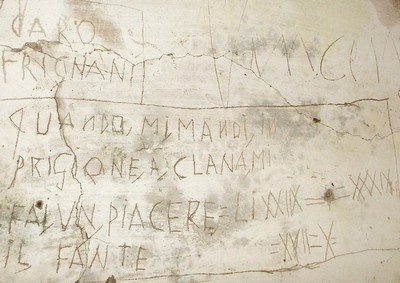 CARO
FRIGNANI
QUANDO, MI MANDI, IN
PRIGIONE, A, CLANAMI
FAI UN PIACERE = LI XXIX = I = XXXIX
IL FANTE =XVII=X=